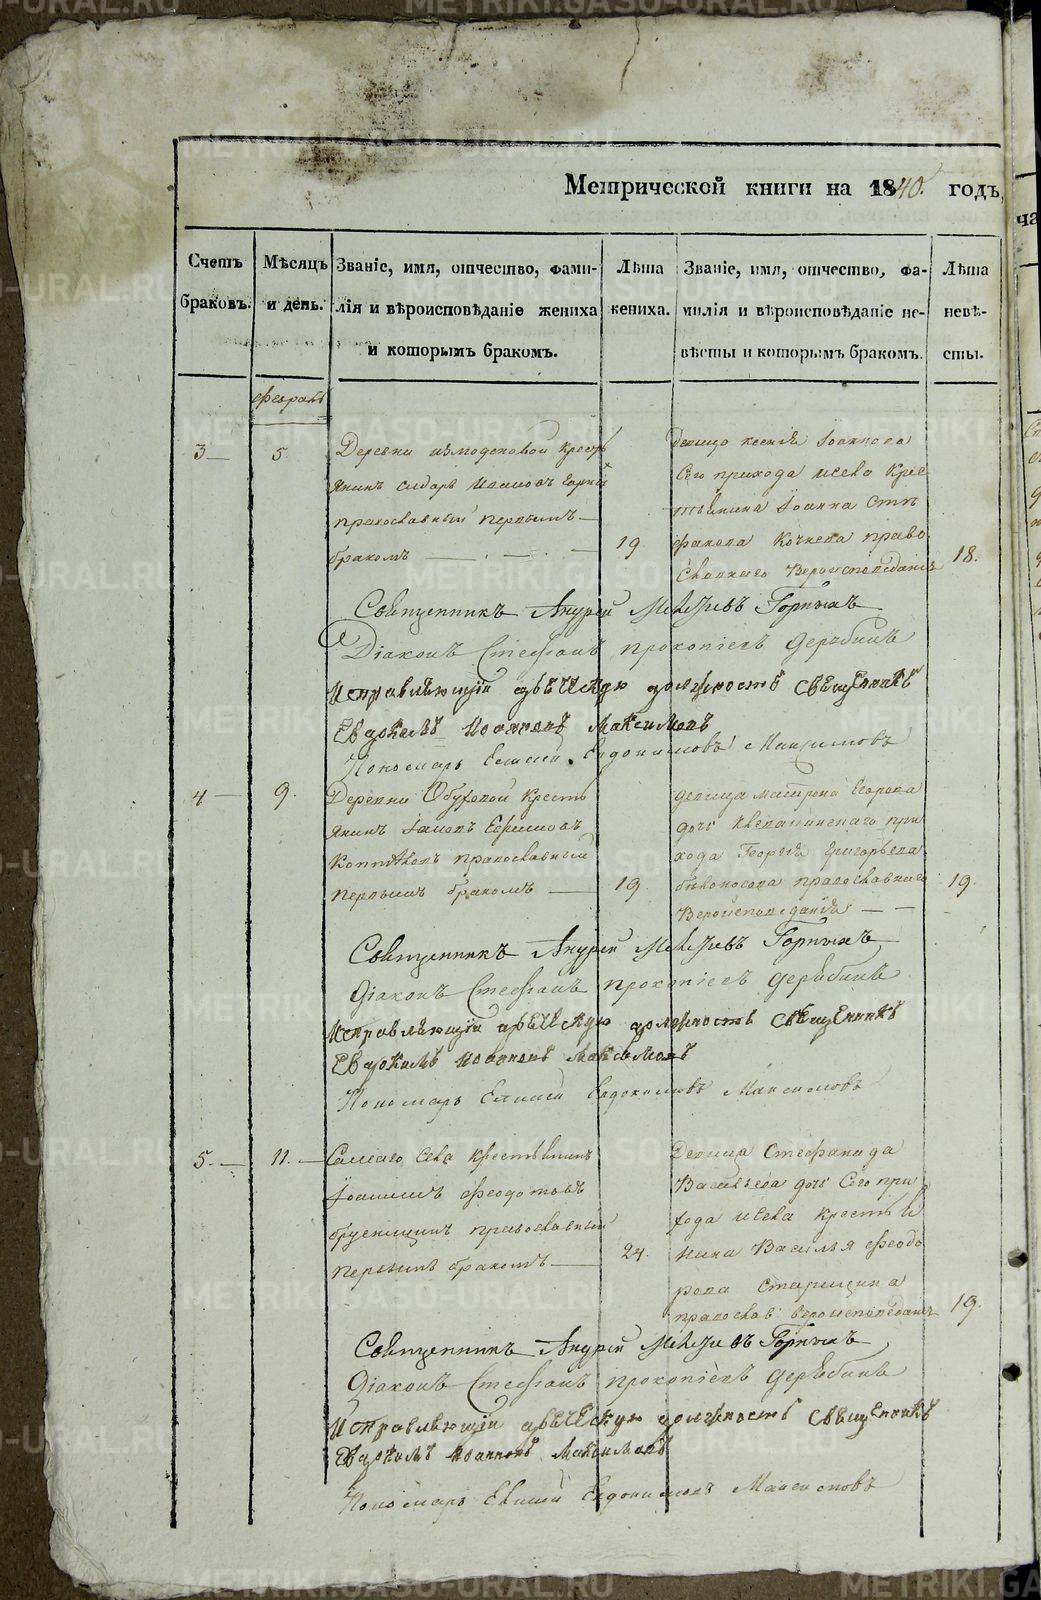 Метрической книги на 1840. годъ
Счетъ браковъ.
Мѣсяцъ и день.
Званіе, имя, отчество, фами-
лія и вѣроисповѣданіе жениха
и которымъ бракомъ.
Лѣта
жениха.
Званіе, имя, отчество, фа-
милія и вѣроисповѣданіе не-
вѣсты и которымъ бракомъ.
Лѣта
невѣ-
сты.
3
5.
Деревни Кресть
янинъ Сидоръ
православный первымъ
бракомъ
19
Девица Ксенія Іоаннова
Сего прихода и села Крес
тьянина Іоанна Сте
фанова Кочнева право
славнаго Вероисповеданія
18.
Священникъ Андрей Горныхъ
Діаконъ Стефанъ Прокопіевъ Дерябинъ
Исправляющій дьяческую должность Священникъ
Евдокимъ Иоанновъ Максимовъ
Пономарь Елисей Евдокимовъ Максимовъ
4
9.
Деревни Обуховой Кресть
янинъ Ефимовъ
православный
первымъ бракомъ
19
девица Матрона Егорова
дочь при
хода Георгія Григорьева
Белоносова православнаго
Вероисповеданія
19.
Священникъ Андрей Горныхъ
Діаконъ Стефанъ Прокопіевъ Дерябинъ
Исправляющій дьяческую должность Священникъ
Евдокимъ Иоанновъ Максимовъ
Пономарь Елисей Евдокимовъ Максимовъ
5.
11.
Самаго Села Крестьянинъ
Іоаннъ Феодотовъ
Брусницынъ православный
первымъ бракомъ
24.
Девица Стефанида
Васильева дочь Сего при
хода и Села Крестья
нина Василья Феодо
рова Старицина
православ: вероисповеданія
19.
Священникъ Андрей Горныхъ
Діаконъ Стефанъ Прокопіевъ Дерябинъ
Исправляющій дьяческую должность Священникъ
Евдокимъ Иоанновъ Максимовъ
Пономарь Елисей Евдокимовъ Максимовъ
METRIKI.GASO-URAL.RU